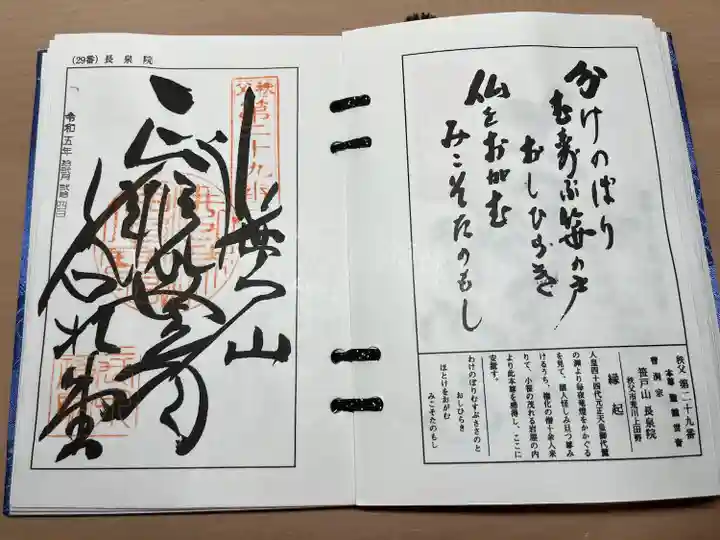 分けのぼり
むすぶ笹の戸
おしひらき
仏をおがむ
みこそたのもし
秩父 第二十九番
本尊 聖観世音
曹洞宗
笹戸山 長泉院
秩父市荒川上田野
縁起
人皇四十四代元正天皇御代
の淵より毎夜竜燈をかかぐる
を見て、諸人怪しみ且つ
けるうち、権化の僧十余人来
りて、小笹の茂れる岩屋の内
より此本尊を感得し、ここに
安置す。
わけのぼりむすぶささのと
おしひらき
ほとけをおがむ
みこそたのもし
(29番) 長泉院
秩父
第二十九番
令和五年
笹戸山
石札堂